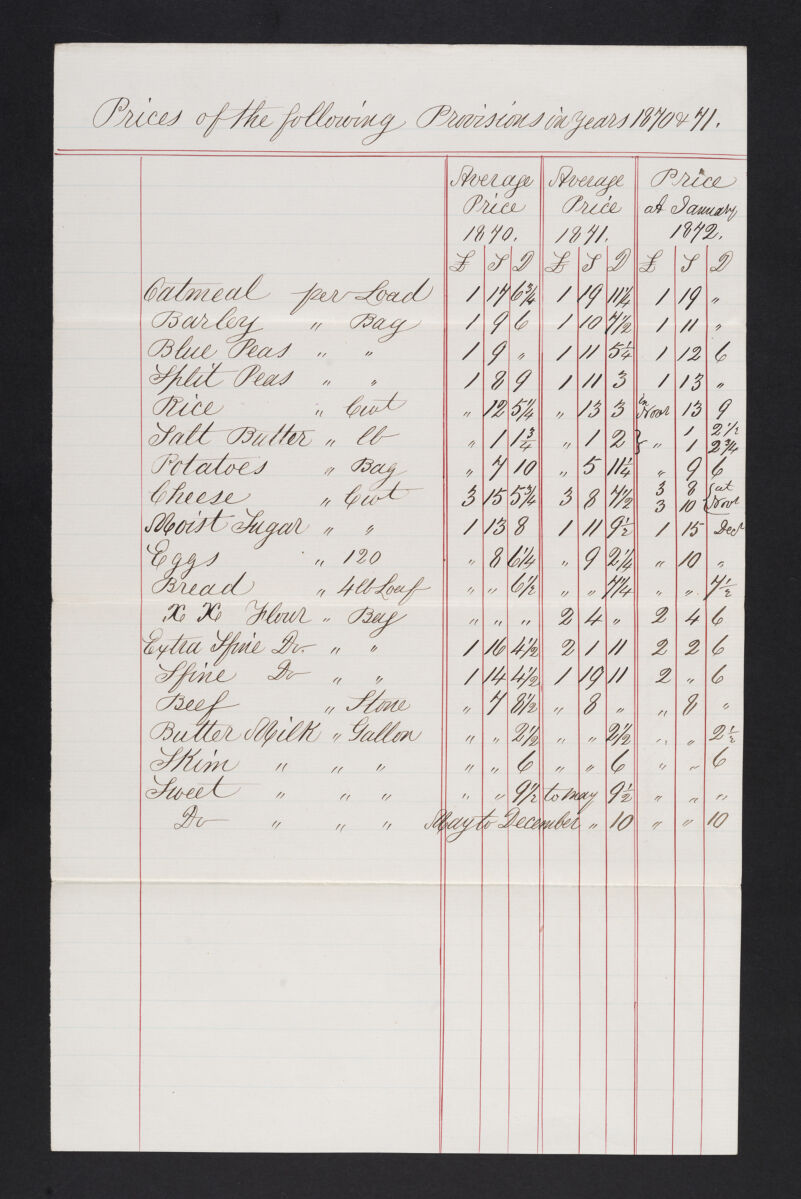 Prices of the following Provisions in years 1870 & 71.
Average Price 1870. Average Price 1871. Price at January 1872.
£ S D £ S D £ S D
Oatmeal per Load 1 17 6¾ 1 19 11¼ 1 19 "
Barley " Bag 1 9 6 1 10 7½ 1 11 "
Blue Peas " " 1 9 " 1 11 5¼ 1 12 6
Split Peas " " 1 8 9 1 11 3 1 13 "
Rice " Cwt " 12 5¼ " 13 3 Novr 13 9
Salt Butter " lb " 1 1¾ " 1 2 } " 1 2½
1 2¾
Potatoes " Bag " 7 10 " 5 11¼ " 9 6
Cheese " Cwt 3 15 5¾ 3 8 7½ 3 8 { at
3 10 Novr
Moist Sugar " " 1 13 8 1 11 9½ 1 15 Decr
Eggs " 120 " 8 6¼ " 9 2¼ " 10 "
Bread " 4lb Loaf " " 6½ " " 7¼ " " 7½
X X Flour " Bag " " " 2 4 " 2 4 6
Extra Sfine Do. " " 1 16 4½ 2 1 11 2 2 6
Sfine Do " " 1 14 4½ 1 19 11 2 " 6
Beef " Stone " 7 8½ " 8 " " 8 "
Butter Milk " Gallon " " 2½ " " 2½ " " 2½
Skim " " " " " 6 " " 6 " " 6
Sweet " " " " " 9½ to may 9½ " " "
Do " " " May to December " 10 " " 10